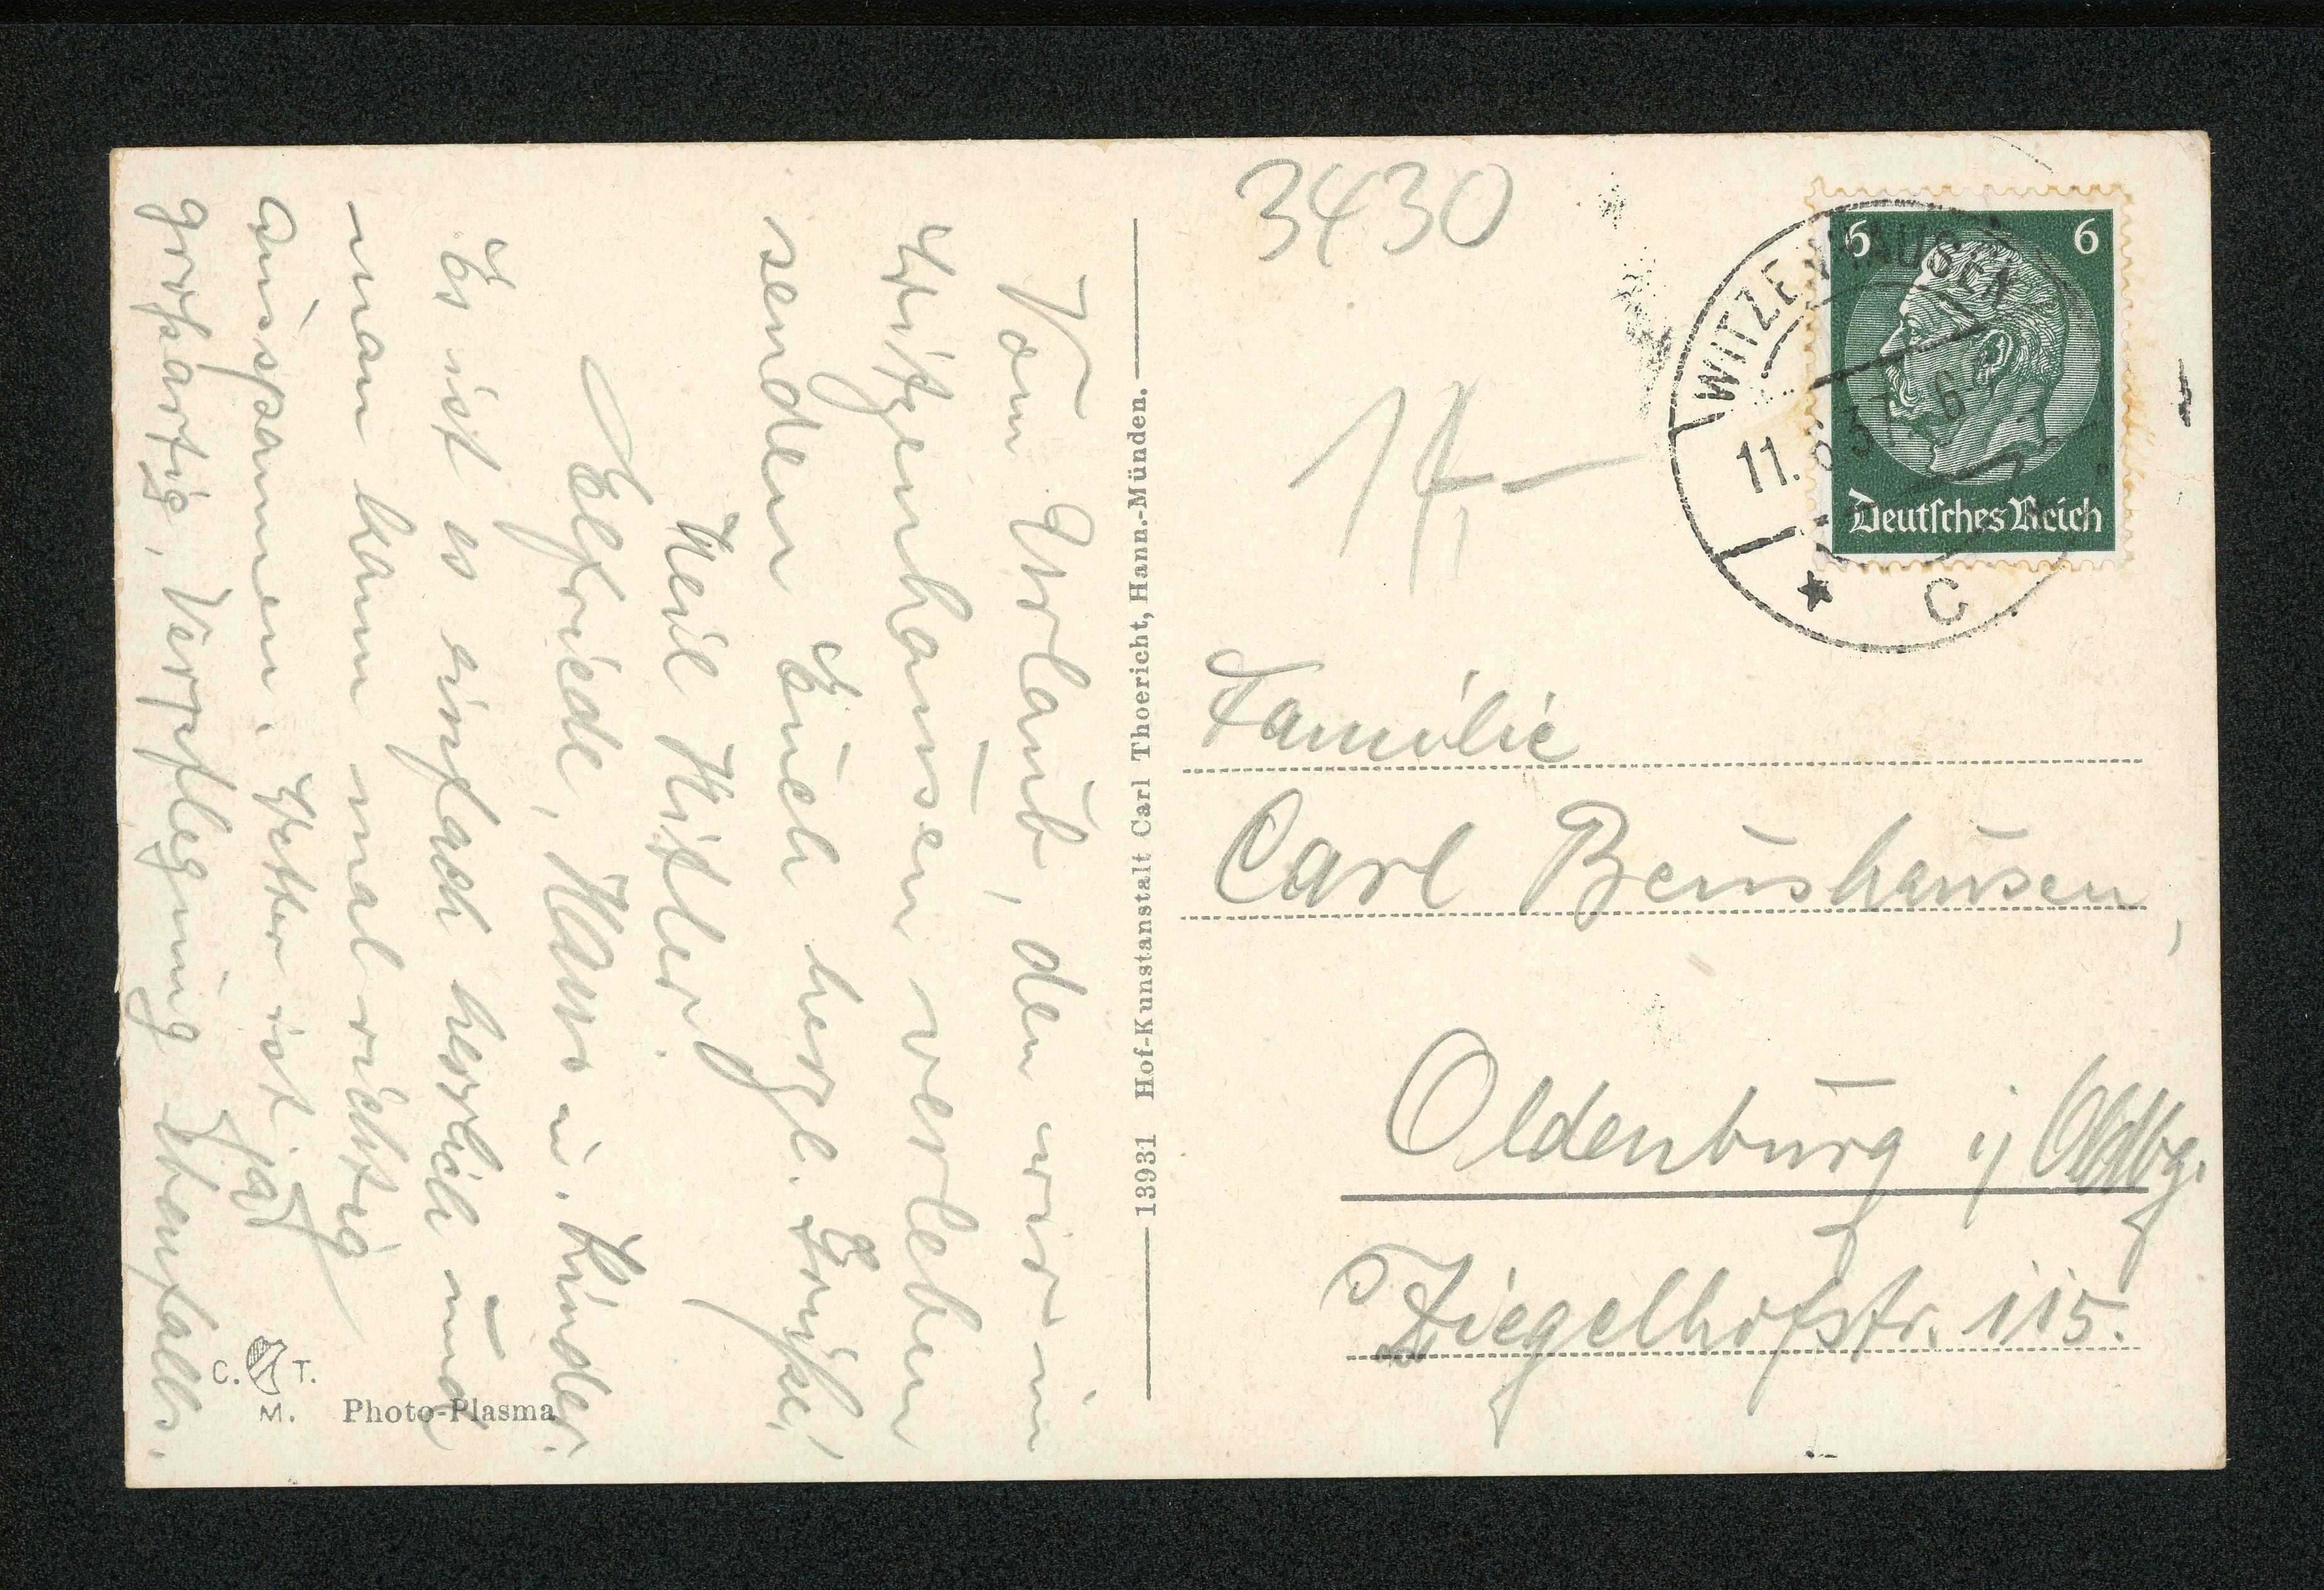 Vom Urlaub, den wir in
Witzenhausen verleben
senden Euch herzl. Grüße!
Heil Hitler
Elfriede, Hans u. Kinder.
Es ist es einfach herrlich und
man kann mal richtig
ausspannen. Wetter ist ja
großartig, Verpflegung ebenfalls.
C. T.
M.
Photo-Plasma
13931 Hof-Kunstanstalt Carl Thoericht, Hann.-Münden.
3430
14,-
6 6
Deutsches Reich
WITZENHAUSEN
11. 6 37. 6
* C
Familie
Carl Beushausen,
Oldenburg i/ Oldbg.
Ziegelhofstr. 115.